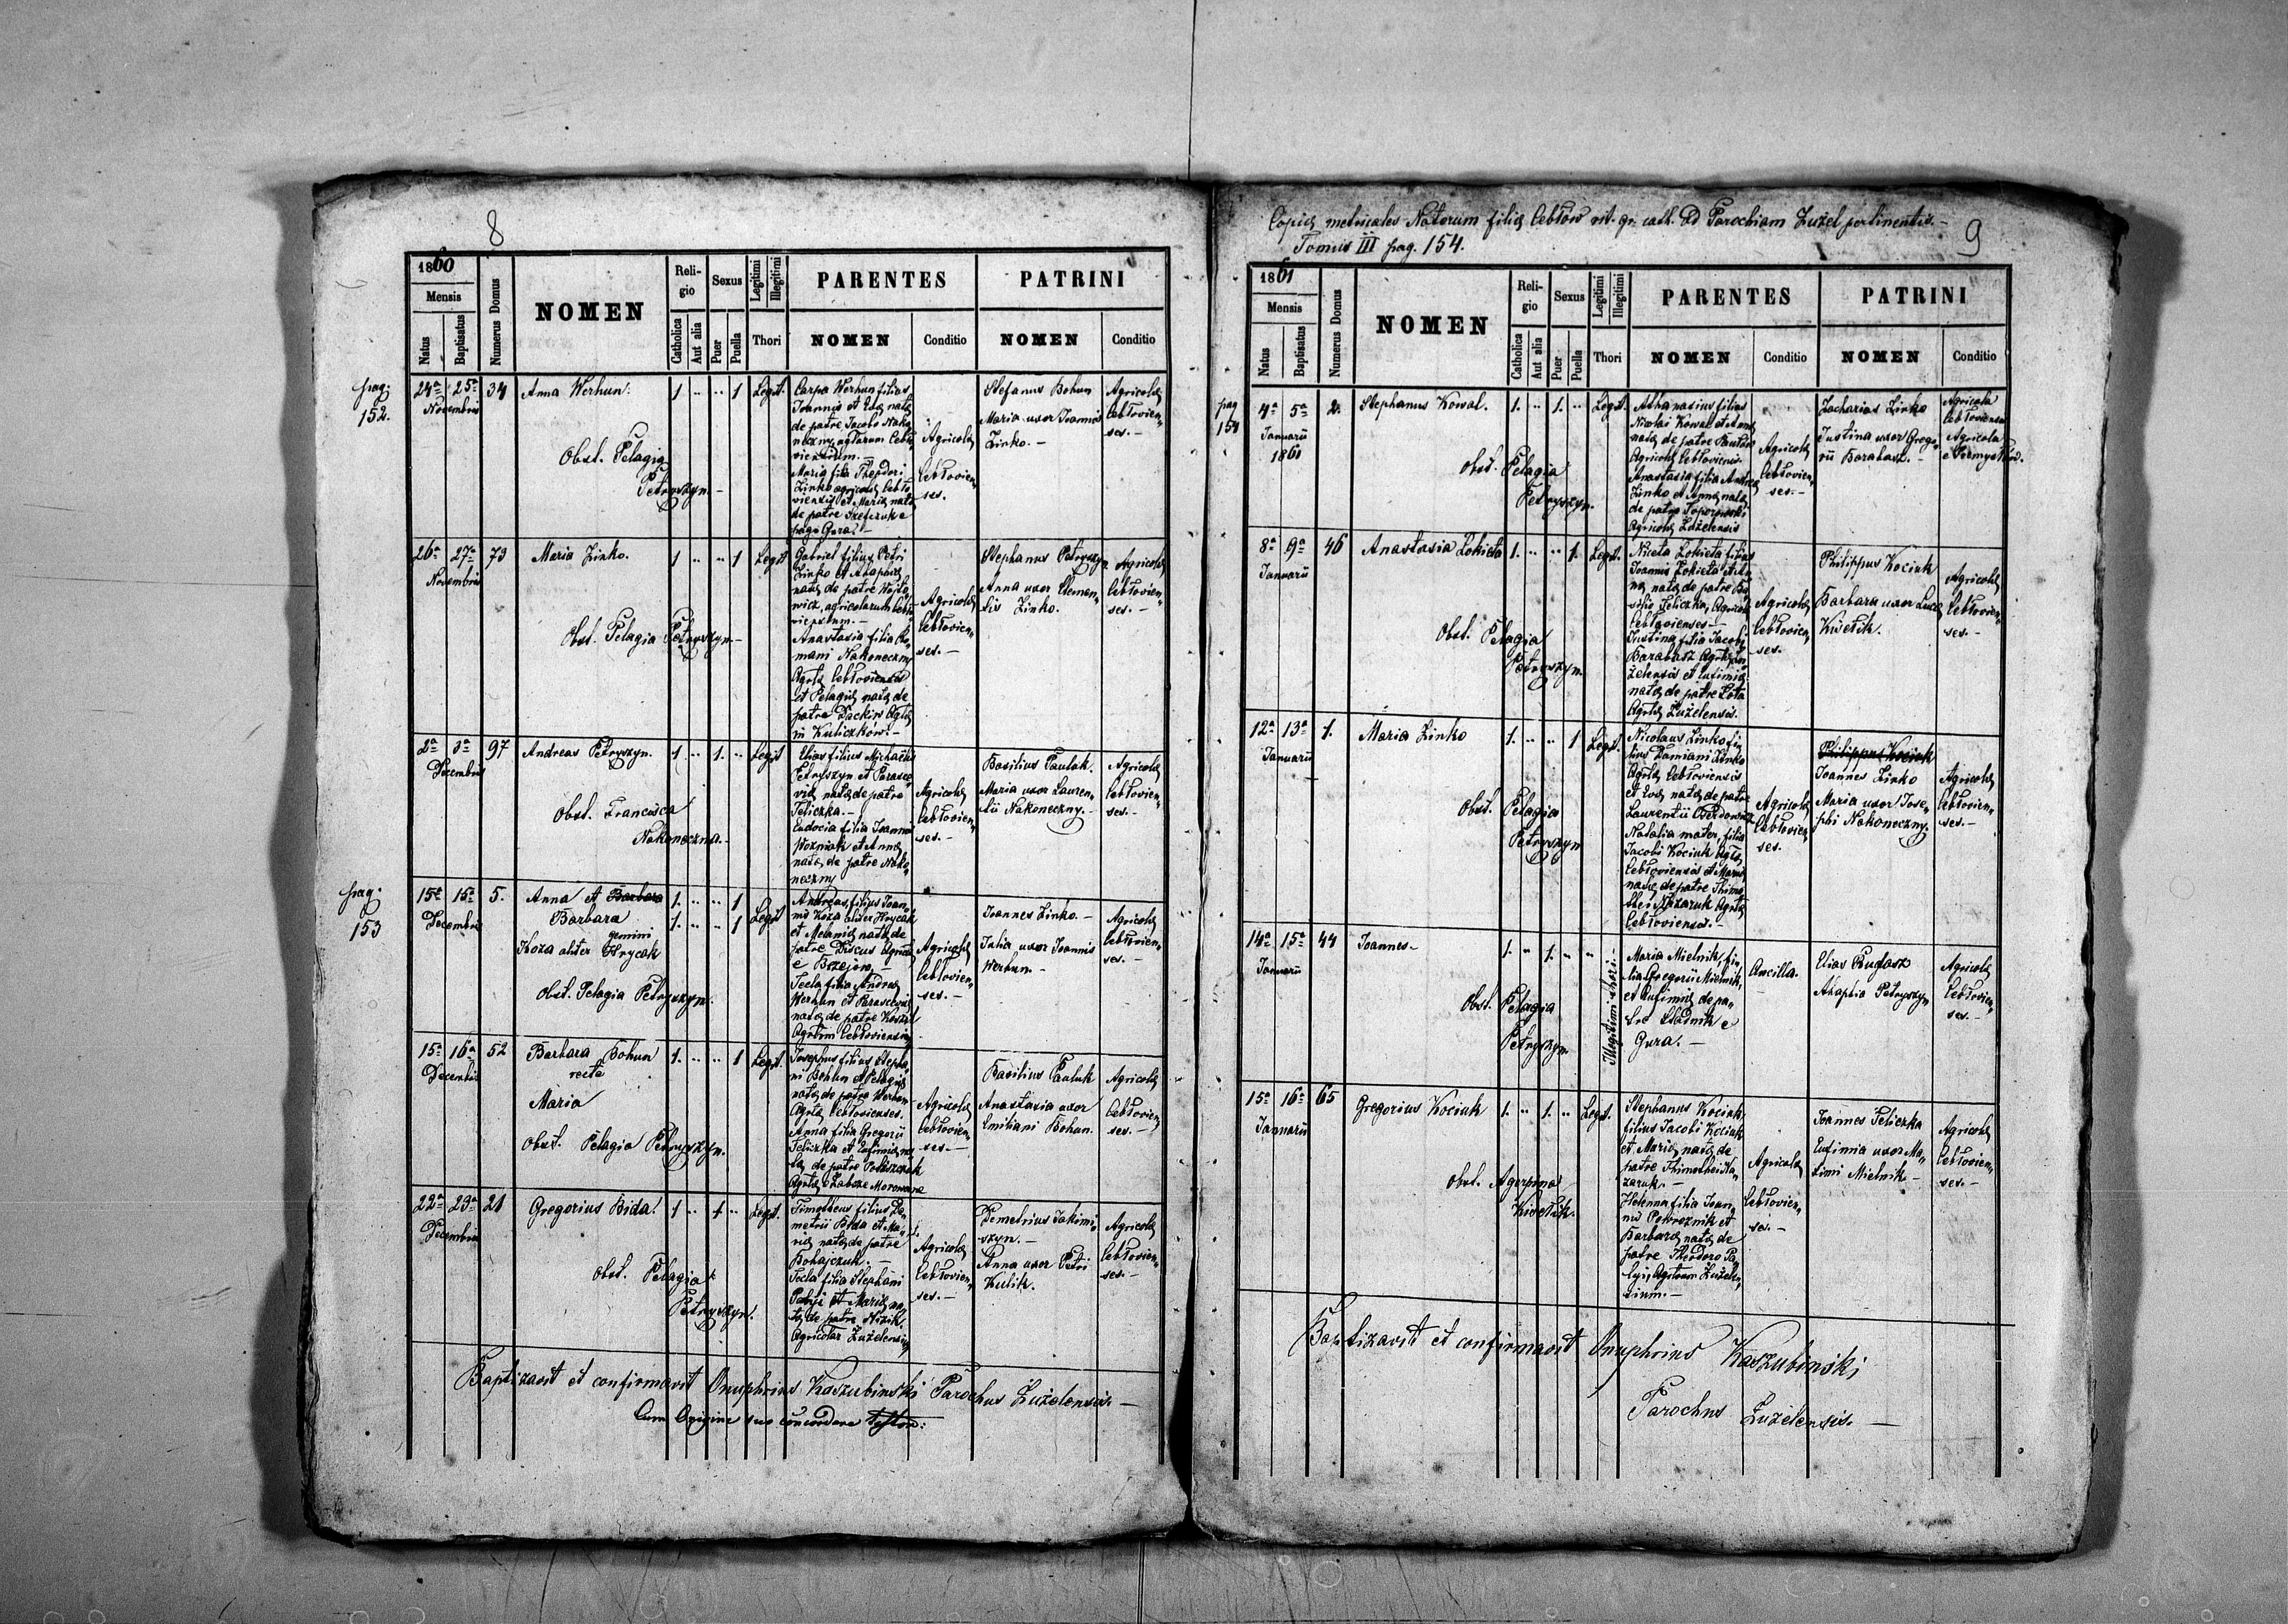 8
1860
Mensis
Natus
Baptisatus
Numerus Domus
NOMEN
Reli-
gio
Catholica
Aut alia
Sexus
Puer
Puella
Legitimi
Illegitimi
Thori
PARENTES
NOMEN
Conditio
PATRINI
NOMEN
Conditio
pag:
152.
24a 25a
Novembris
34
Anna Werhun.
Obst. Pelagia
Petryszyn.
1 .. .. 1
Legit.
Carpa Werhun filius
Joannis et Evae natae
de patre Jacobo Nako
neczny, agrarum Cebło
viensium.
Maria filia Theodori
Zinko agricolae Cebło
viensis et Mariae natae
de patre
pago Gura.
Agricolae
Cebłovien„
ses.
Stefanus Bohun
Maria uxor Joannis
Zinko.
Agricolae
Cebłovien„
ses.
26a 27a
Novembris
73
Maria Zinko.
Obst. Pelagia Petryszyn
1 .. .. 1
Legit
Gabriel filius Petri
Zinko et Ahaphiae
natae de patre Wojto
wicz, agricolarum Cebło
viensium.
Anastasia filia Ro„
mani Nakoneczny
Agrlae Cebłoviensis
et Pelagiae natae de
patre Dackiw Agrlae
in Kuliczków.
Agricolae
Cebłovien„
ses.
Stephanus Petryszyn
Anna uxor Clemen„
tis Zinko.
Agricolae
Cebłovien„
ses.
2a 3a
Decembris
97
Andreas Petryszyn.
Obst. Francisca
Nakoneczna.
1 .. 1. ..
Legit
Elias filius Michaelis
Petryszyn et Parasce
viae natae de patre
Teliczka.
Eudocia filia Joannis
Wozniak et Annae
natae de patre Nako
neczny
Agricolae
Cebłovien„
ses.
Basilius Paulak.
Maria uxor Lauren„
tii Nakoneczny.
Agricolae
Cebłovien„
ses.
pag:
153
15a 15a
Decembris
5.
Anna et Barbara
Barbara
gemini
Koza aliter Hrycak
Obst. Pelagia Petryszyn.
1. .. .. 1
1. .. .. 1
Legit
Andreas, filius Joan„
nis Koza aliter Hrycak
et Melaniae natae de
patre Discus
e
Tecla filia Andreae
Werhun et Parasceviae
natae de patre
Agrlarum Cebłoviensium
Agricolae
Cebłovien„
ses.
Joannes Zinko.
Julia uxor Joannis
Werhun.
Agricolae
Cebłovien„
ses.
15a 16a
Decembris
52
Barbara Bohun
recte
Maria
Obst. Pelagia Petryszyn.
1. .. .. 1
Legit.
Josephus filius Stepha„
ni Bohun et Pelagiae
natae de patre Werhun
Agrlae Cebłovienses.
Anna filia Gregorii
Teliczka et Eufimiae na„
tae de patre
Agrlae
Agricolae
Cebłovien„
ses.
Basilius Pauluk
Anastasia uxor
Emiliani Bohun.
Agricolae
Cebłovien„
ses.
22a 23a
Decembris
21
Gregorius Bida.
Obst. Pelagia
Petryszyn.
1 .. 1 ..
Legit.
Timotheus filius De„
metrii Bida et Ma„
riae natae de patre
Bohajczuk.
Tecla filia Stephani
Palij et Mariae na„
tae de patre Nizik.
Agricolae Zuzelensis
Agricolae
Cebłovien„
ses.
Demetrius Jakimi
szyn.
Anna uxor Petri
Kulik.
Agricolae
Cebłovien„
ses.
Baptizavit et confirmavit Onuphrius Kaszubinski Parochus Żużelensis.
Cum Origine suo concordare testor:
Copia metricales Natorum filiae Cebłów rit. gr. cath. ad Parochiam Żużel pertinentis.
Tomus III pag. 154.
9
1861
Mensis
Natus
Baptisatus
Numerus Domus
NOMEN
Reli-
gio
Catholica
Aut alia
Sexus
Puer
Puella
Legitimi
Illegitimi
Thori
PARENTES
NOMEN
Conditio
PATRINI
NOMEN
Conditio
pag
154
4a 5a
Januarii
1861
2.
Stephanus Kowal.
Obst. Pelagia
Petryszyn.
1. .. 1. ..
Legit.
Athanasius filius
Nicolai Kowal et Annae
natae de patre
Agricolae Cebłoviensis.
Anastasia filia Andreae
Zinko et Annae natae
de patre
Agricolae Żużelensis
Agricolae
Cebłovien„
ses.
Zacharias Zinko
Justina uxor Grego„
rii Barabasz.
Agricola
Cebłoviensis
Agricola
e
8a 9a
Januarii
46
Anastasia Łokieta
Obst. Pelagia
Petryszyn.
1. .. .. 1.
Legit.
Niceta Łokieta filius
Joannis Łokieta et An„
nae, natae de patre Ba„
silio Teliczka, Agricolae
Cebłovienses
Justina filia Jacobi
Barabasz Agrlae Żu„
żelensis et Eufimiae
natae de patre Łota
Agrlae Żużelensis.
Agricolae
Cebłovien„
ses.
Philippus Kociuk
Barbara uxor Lucae
Kwetik.
Agricolae
Cebłovien„
ses.
12a 13a
Januarii
1.
Maria Zinko
Obst. Pelagia
Petryszyn
1. .. .. 1
Legit.
Nicolaus Zinko fi„
lius Damiani Zinko
Agrlae Cebłoviensis
et Evae natae de patre
Laurentii
Natalia mater, filia
Jacobi Kociuk Agrlae,
Cebłoviensis et Mariae
natae de patre Thimo„
thei Nazaruk Agrlae
Cebłoviensis.
Agricolae
Cebłovien„
ses.
Philippus Kociuk
Joannes Zinko
Maria uxor Jose„
phi Nakoneczny.
Agricolae
Cebłovien„
ses.
14a 15a
Januarii
44
Joannes
Obst. Pelagia
Petryszyn.
1. .. 1. ..
Illegitimi thori.
Maria Mielnik, fi„
lia Gregorii Mielnik,
et Eufimiae de pa„
tre Śladnik e
Gura.
Ancilla.
Elias Rudasz
Ahaphia Petryszyn
Agricolae
Cebłovien„
ses.
15a 16a
Januarii
65
Gregorius Kociuk
Obst. Agrypina
Kwetik.
1. .. 1. ..
Legit.
Stephanus Kociuk
filius Jacobi Kociuk
et Mariae natae de
patre Thimothei Na„
zaruk.
Helenna filia Joan„
nis Powroznik et
Barbarae natae de
patre Theodoro Pa„
lyi, Agrlarum Żużelen„
sium.
Agricolae
Cebłovien„
ses.
Joannes Teliczka
Eufimia uxor Ma„
ximi Mielnik
Agricolae
Cebłovien„
ses.
Baptizavit et confirmavit Onuphrius Kaszubinski
Parochus Żużelensis.